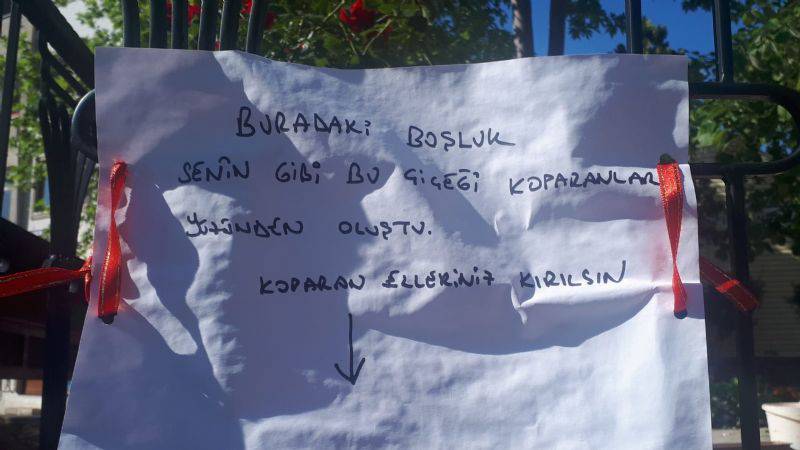 BURADAKİ BOŞLUK
SENİN GİBİ BU ÇİÇEĞİ KOPARANLAR
YÜZÜNDEN OLUŞTU.
KOPARAN ELLERİNİZ KIRILSIN